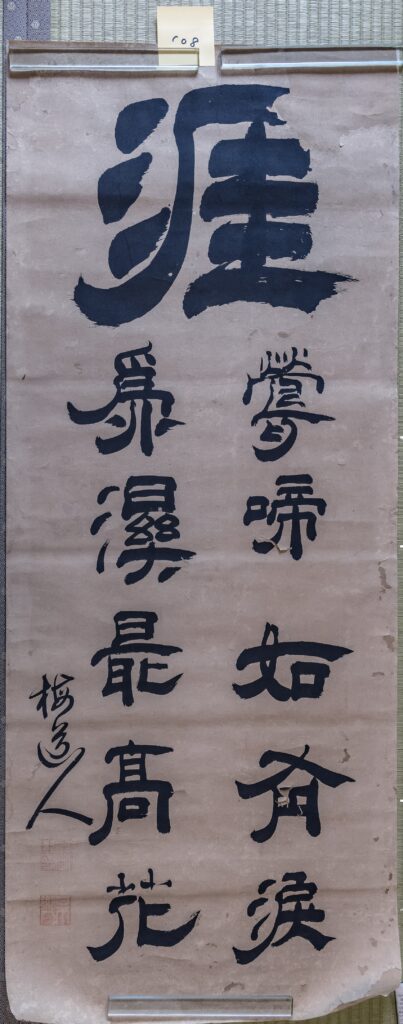 108
涯
鶯啼如有淚
爲濕最高花
梅道人